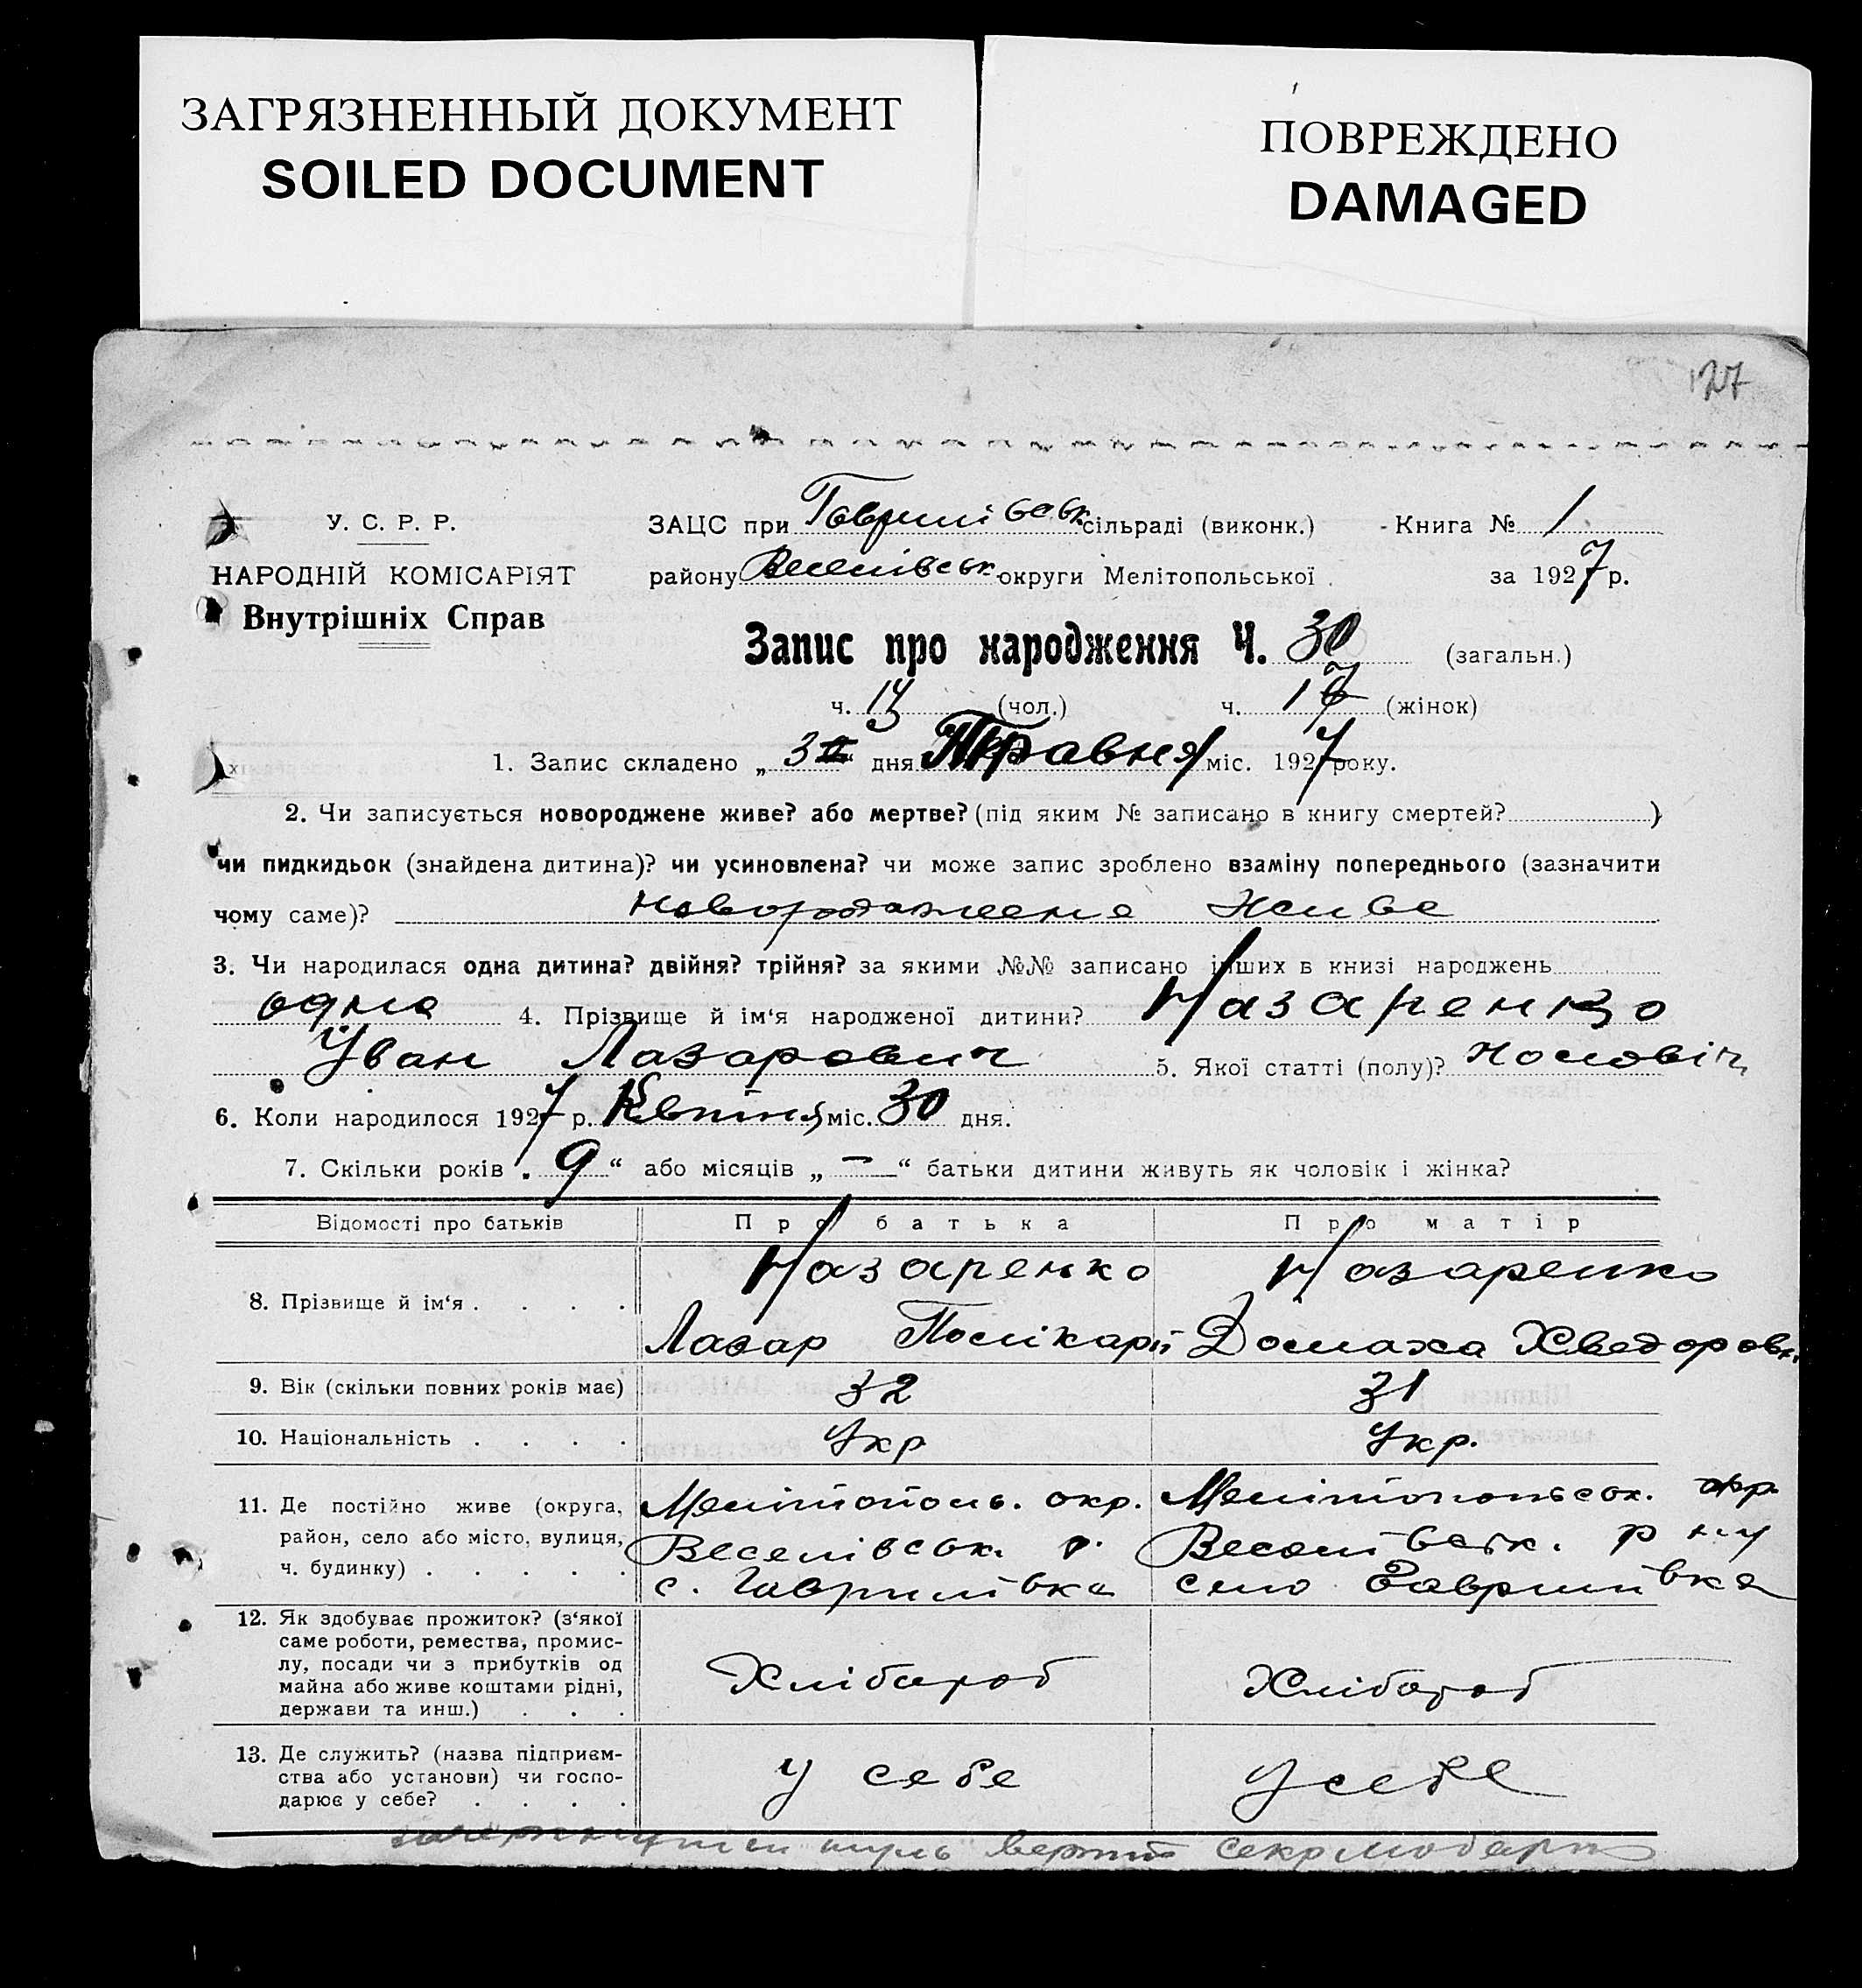 ЗАГРЯЗНЕННЫЙ ДОКУМЕНТ
SOILED DOCUMENT
ПОВРЕЖДЕНО
DAMAGED
127
У. С. Р. Р.
НАРОДНІЙ КОМІСАРІЯТ
Внутрішніх Справ
ЗАЦС при Гаврилівськ сільраді (виконк.) - Книга № 1
району Веселівськ. округи Мелітопольської за 1927 р.
Запис про народження Ч. 30 (загальн.)
ч. 13 (чол.) ч. 17 (жінок)
1. Запис складено „ 3 дня Травня міс. 1927 року.
2. Чи записується новороджене живе? або мертве? (під яким № записано в книгу смертей? )
чи пидкидьок (знайдена дитина)? чи усиновлена? чи може запис зроблено взаміну попереднього (зазначити
чому саме)? новородження Живе
3. Чи народилася одна дитина? двійня? трійня? за якими №№ записано інших в книзі народжень
одна 4. Прізвище й ім‘я народженої дитини? Назаренко
Іван Лазарович 5. Якої статті (полу)? Чоловіч
6. Коли народилося 1927 р. Квітня міс. 30 дня.
7. Скільки років „ 9 “ або місяців „ — “ батьки дитини живуть як чоловік і жінка?
Відомості про батьків Про батька Про матір
8. Прізвище й ім‘я . . . . Назаренко Назаренко
Лазар Полікарп Домаха Хведоровн.
9. Вік (скільки повних років має) 32 31
10. Національність . . . . Укр Укр.
11. Де постійно живе (округа, Мелітополь. окр. Мелітопольськ. окр.
район, село або місто, вулиця, Веселівськ. р. Веселівськ. р ну
ч. будинку) . . . . . с. Гаврилівка село Гаврилівка
12. Як здобуває прожиток? (з‘якої
саме роботи, ремества, промис-
лу, посади чи з прибутків од
майна або живе коштами рідні,
держави та инш.) . . .
Хлібароб Хлібароб
13. Де служить? (назва підприєм-
ства або установи) чи госпо-
дарює у себе? . . . .
у себе у себе